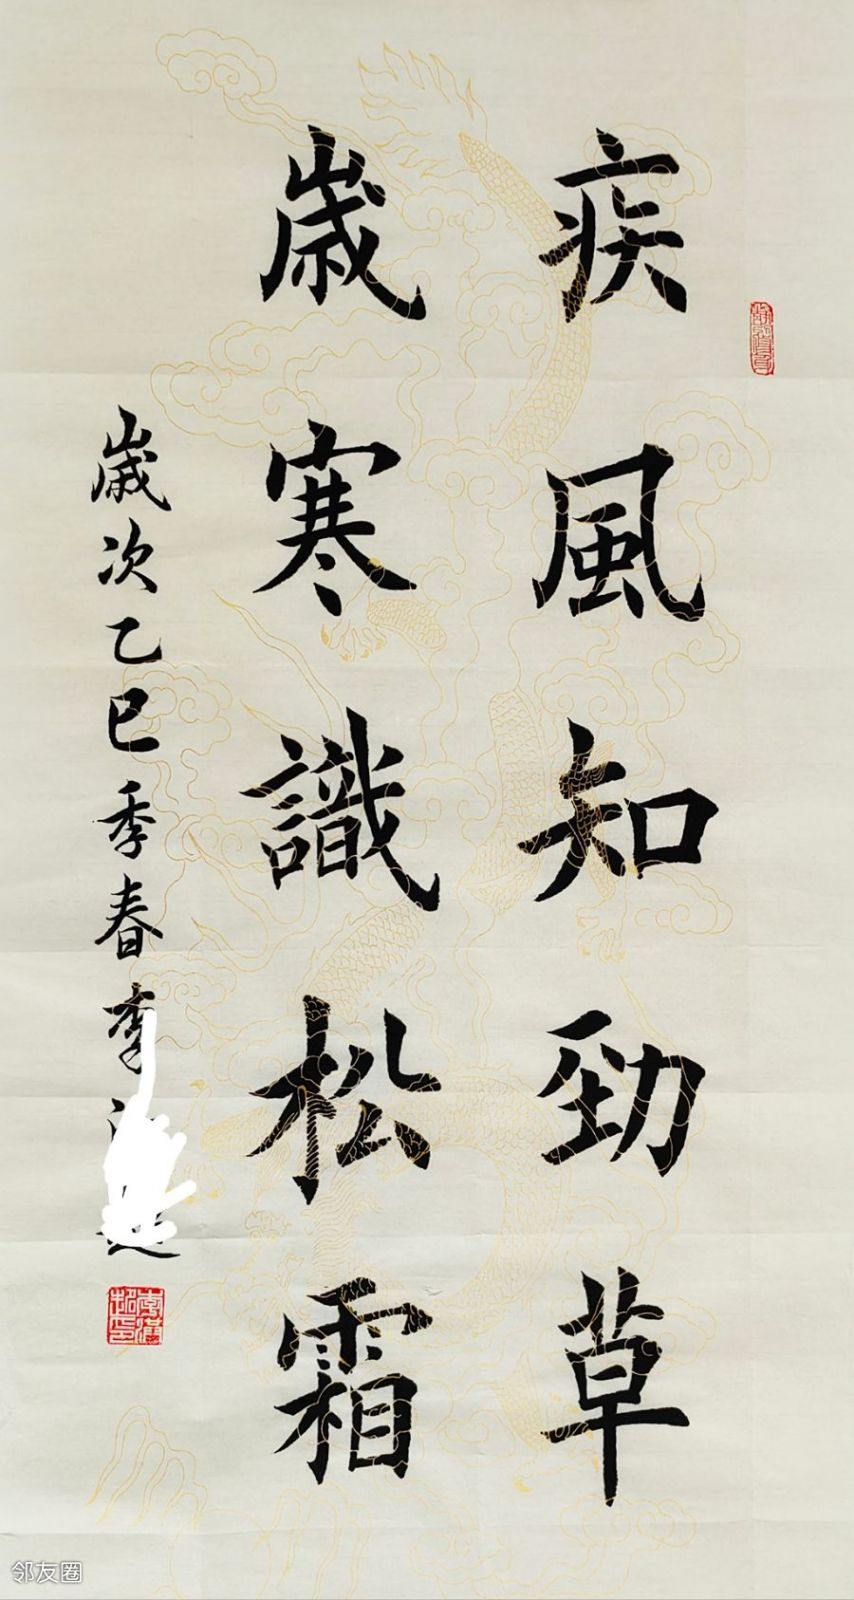 疾風知勁草
歲寒識松霜
歲次乙巳季春李
邻友圈